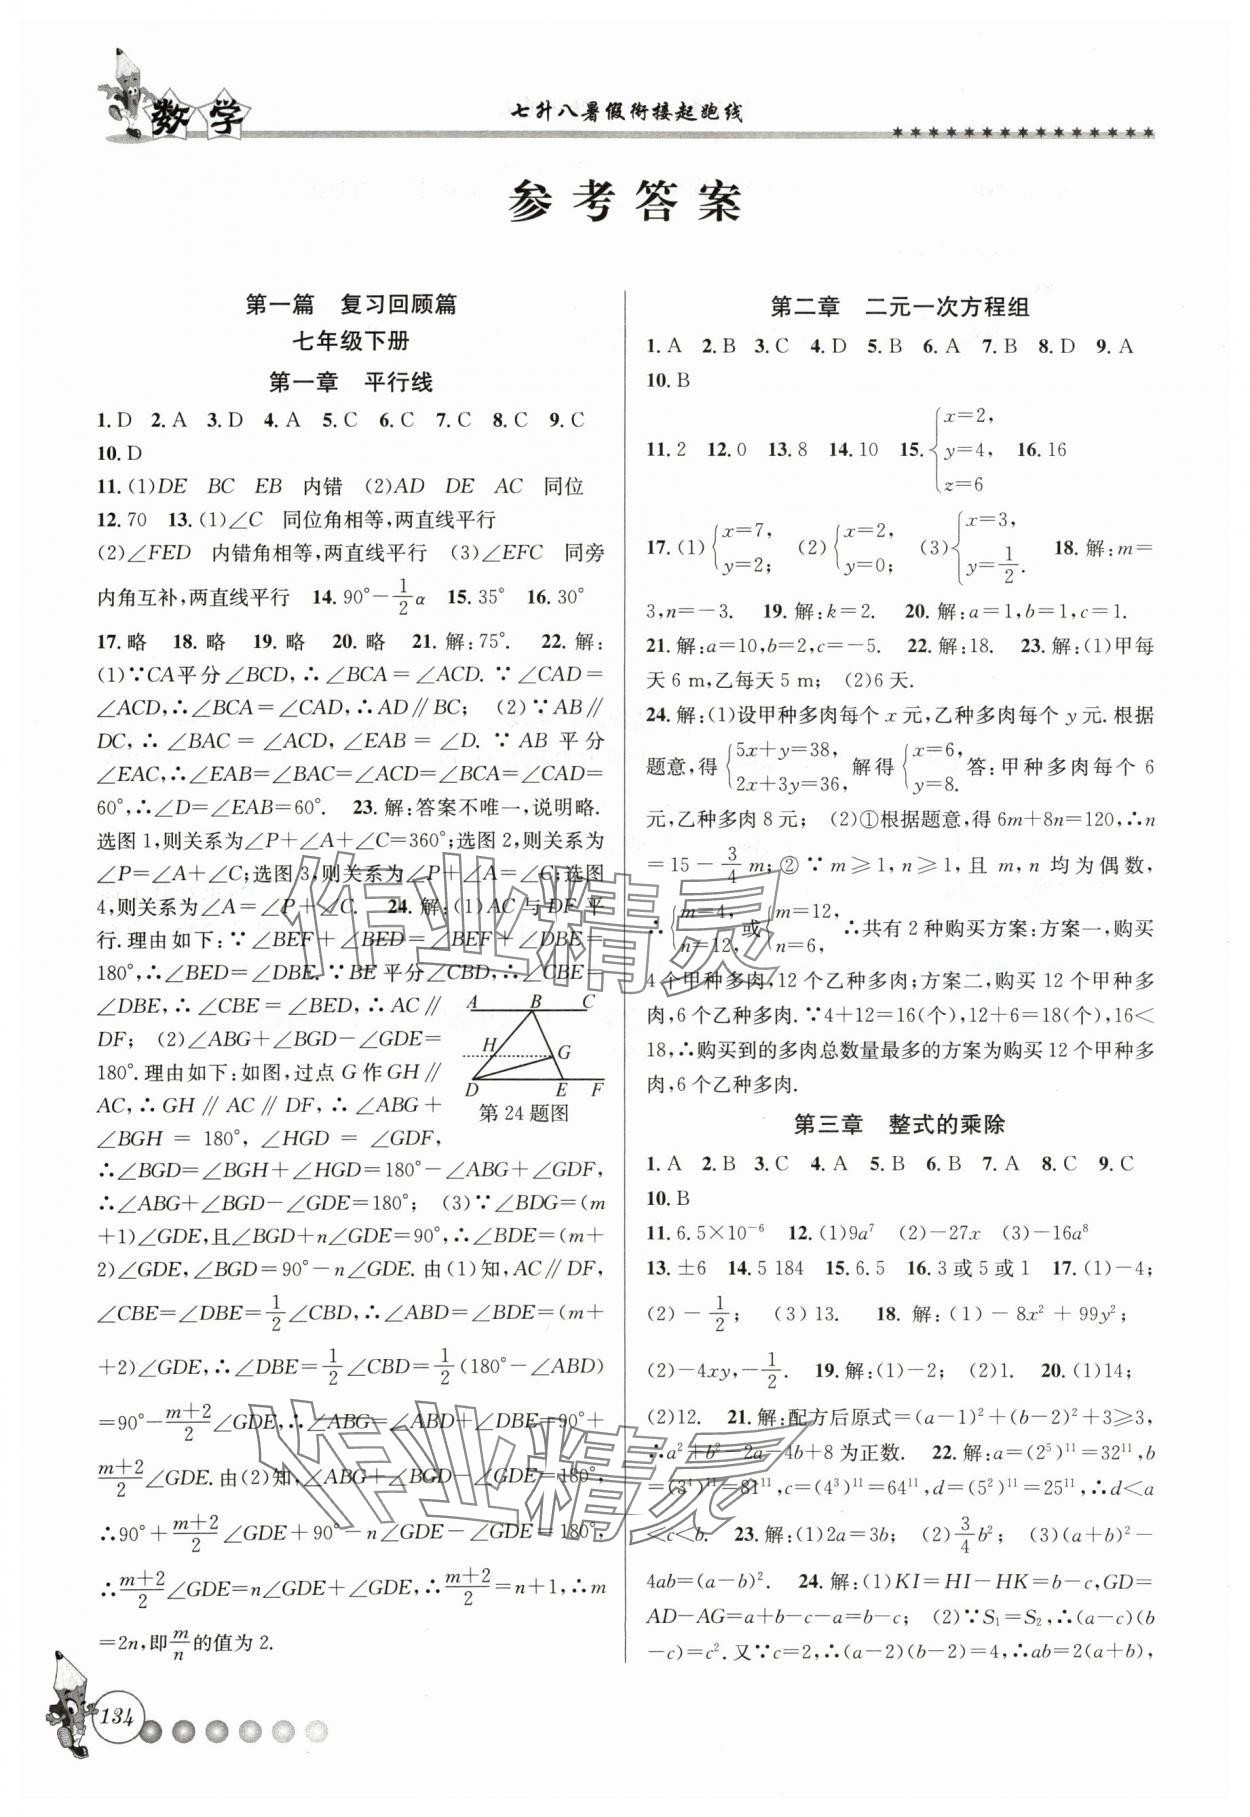 数学
七升八暑假衔接起跑线
参考答案
第一篇 复习回顾篇
七年级下册
第一章 平行线
1. D 2. A 3. D 4. A 5. C 6. C 7. C 8. C 9. C
10. D
11. (1)DE BC EB 内错 (2)AD DE AC 同位
12. 70 13. (1)∠C 同位角相等,两直线平行
(2)∠FED 内错角相等,两直线平行 (3)∠EFC 同旁
内角互补,两直线平行 14. 90°−1/2α 15. 35° 16. 30°
17. 略 18. 略 19. 略 20. 略 21. 解:75°. 22. 解:
(1)∵CA平分∠BCD,∴∠BCA=∠ACD. ∵∠CAD=
∠ACD,∴∠BCA=∠CAD,∴AD∥BC; (2)∵AB∥
DC,∴∠BAC=∠ACD,∴∠BAE=∠D. ∵AB 平分
∠EAC,∴∠EAB=∠BAC=∠ACD=∠BCA=∠CAD=
60°,∴∠D=∠EAB=60°. 23. 解:答案不唯一,说明略.
选图 1,则关系为∠P+∠A+∠C=360°;选图 2,则关系为
∠P=∠A+∠C;选图 3,则关系为∠P+∠A=∠C;选图
4,则关系为∠A=∠P+∠C. 24. 解:(1)AC 与 DF 平
行.理由如下:∵∠BEF+∠BED=∠BEF+∠DBE=
180°,∴∠BED=∠DBE. ∵BE 平分∠CBD,∴∠CBE=
∠DBE,∴∠CBE=∠BED,∴AC∥
DF; (2)∠ABG+∠BGD−∠GDE=
180°.理由如下:如图,过点 G 作 GH∥
AC,∴GH∥AC∥DF,∴∠ABG+
∠BGH=180°,∠HGD=∠GDF,
A B C
H G
D E F
第 24 题图
∴∠BGD=∠BGH+∠HGD=180°−∠ABG+∠GDF,
∴∠ABG+∠BGD−∠GDE=180°; (3)∵∠BDG=(m
+1)∠GDE,且∠BGD+n∠GDE=90°,∴∠BDE=(m+
2)∠GDE,∠BGD=90°−n∠GDE. 由(1)知,AC∥DF,
∠CBE=∠DBE=1/2∠CBD,∴∠ABD=∠BDE=(m+
+2)∠GDE,∴∠DBE=1/2∠CBD=1/2(180°−∠ABD)
=90°−(m+2)/2∠GDE,∴∠ABG=∠ABD+∠DBE=90°+
(m+2)/2∠GDE.由(2)知,∠ABG+∠BGD−∠GDE=180°,
∴90°+(m+2)/2∠GDE+90°−n∠GDE−∠GDE=180°,
∴(m+2)/2∠GDE=n∠GDE+∠GDE,∴(m+2)/2=n+1,∴m
=2n,即m/n的值为 2.
第二章 二元一次方程组
1. A 2. B 3. C 4. D 5. B 6. A 7. B 8. D 9. A
10. B
11. 2 12. 0 13. 8 14. 10 15. {x=2, y=4, z=6 16. 16
17. (1){x=7, y=2; (2){x=2, y=0; (3){x=3, y=1/2. 18. 解:m=
3,n=−3. 19. 解:k=2. 20. 解:a=1,b=1,c=1.
21. 解:a=10,b=2,c=−5. 22. 解:18. 23. 解:(1)甲每
天 6 m,乙每天 5 m; (2)6 天.
24. 解:(1)设甲种多肉每个 x 元,乙种多肉每个 y 元.根据
题意,得{5x+y=38, 2x+3y=36, 解得{x=6, y=8. 答:甲种多肉每个 6
元,乙种多肉 8 元; (2)①根据题意,得 6m+8n=120,∴n
=15−3/4m;②∵m⩾1,n⩾1,且 m,n 均为偶数,
∴{m=4, n=12, 或{m=12, n=6, ∴共有 2 种购买方案:方案一,购买
4 个甲种多肉,12 个乙种多肉;方案二,购买 12 个甲种多
肉,6 个乙种多肉.∵4+12=16(个),12+6=18(个),16<
18,∴购买到的多肉总数量最多的方案为购买 12 个甲种多
肉,6 个乙种多肉.
第三章 整式的乘除
1. A 2. B 3. C 4. A 5. B 6. B 7. A 8. C 9. C
10. B
11. 6.5×10⁻⁶ 12. (1)9a⁷ (2)−27x (3)−16a⁸
13. ±6 14. 5 184 15. 6.5 16. 3 或 5 或 1 17. (1)−4;
(2)−1/2; (3)13. 18. 解:(1)−8x²+99y²;
(2)−4xy,−1/2. 19. 解:(1)−2; (2)1. 20. (1)14;
(2)12. 21. 解:配方后原式=(a−1)²+(b−2)²+3⩾3,
∴a²+b²−2a−4b+8 为正数. 22. 解:a=(2⁵)¹¹=32¹¹,b
=(3⁴)¹¹=81¹¹,c=(4³)¹¹=64¹¹,d=(5²)¹¹=25¹¹,∴d<a
<c<b. 23. 解:(1)2a=3b; (2)3/4b²; (3)(a+b)²−
4ab=(a−b)². 24. 解:(1)KI=HI−HK=b−c,GD=
AD−AG=a+b−c−a=b−c; (2)∵S₁=S₂,∴(a−c)(b
−c)=c².又∵c=2,∴(a−2)(b−2)=4,∴ab=2(a+b),
作业精灵
作业精灵
134